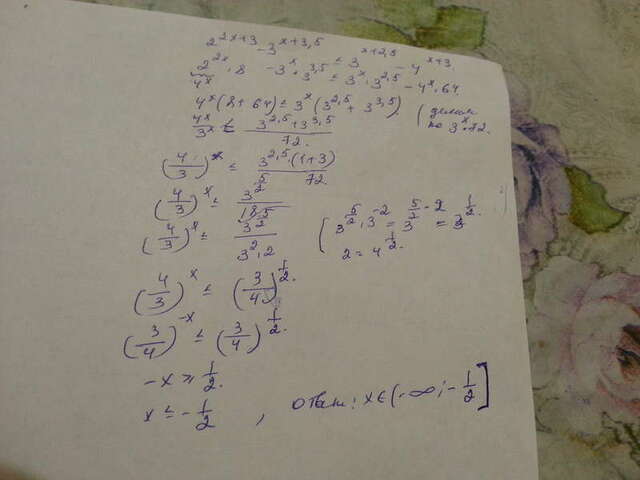 2^{2x+3} - 3^{x+3,5} ≤ 3^{x+2,5} - 4^{x+3}
2^{2x} · 8 - 3^x · 3^{3,5} ≤ 3^x · 3^{2,5} - 4^x · 64.
4^x
4^x (8 + 64) ≤ 3^x (3^{2,5} + 3^{3,5}) (делим на 3^x · 72.
4^x / 3^x ≤ (3^{2,5} + 3^{3,5}) / 72.
(4/3)^x ≤ 3^{2,5} · (1+3) / 72.
(4/3)^x ≤ 3^{5/2} / 18
(4/3)^x ≤ 3^{5/2} / 3^2 · 2 (3^{5/2} · 3^{-2} = 3^{5/2 - 2} = 3^{1/2}.
2 = 4^{1/2}.
(4/3)^x ≤ (3/4)^{1/2}.
(3/4)^{-x} ≤ (3/4)^{1/2}.
-x ≥ 1/2.
x ≤ -1/2 , ответ: x∈(-∞; -1/2]